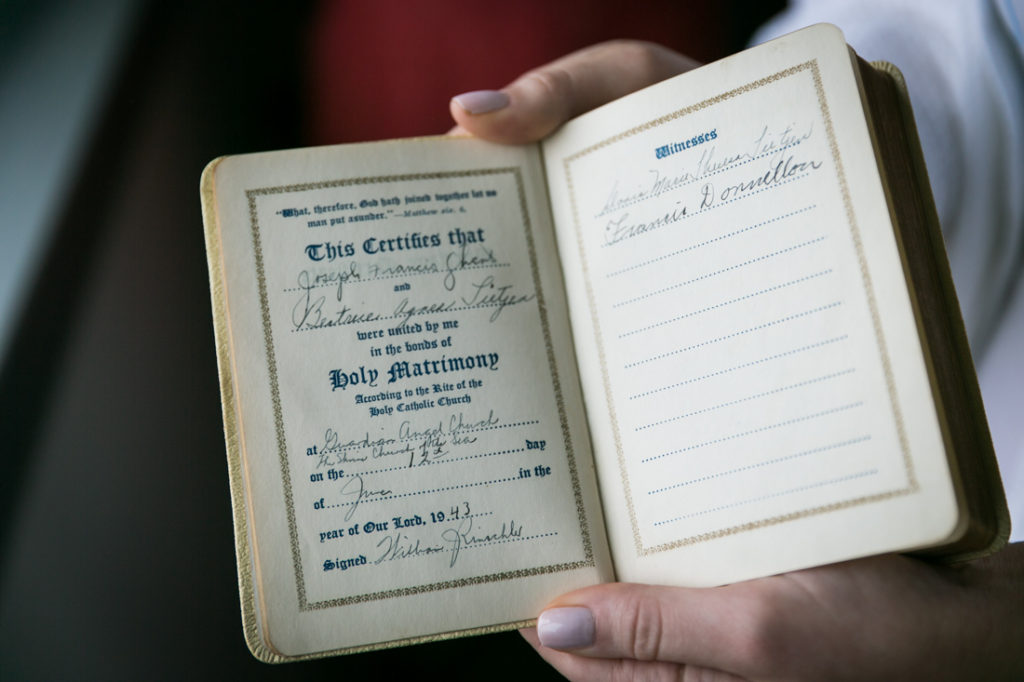 "What, therefore, God hath joined together let no
man put asunder."—Matthew xix. 6.
This Certifies that
Joseph Francis
and
Beatrice Agnes Lietjen
were united by me
in the bonds of
Holy Matrimony
According to the Rite of the
Holy Catholic Church
at Guardian Angel Church
Church of the Sea
on the 12th day
of June in the
year of Our Lord, 1943
Signed William
Witnesses
Marie Theresa Lietjen
Francis Donnellon